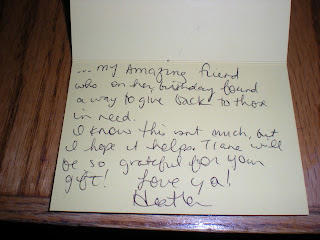 ... my Amazing friend
who on her birthday found
a way to give back to those
in need.
I know this isnt much, but
I hope it helps. Tiane will
be so grateful for your
gift! Love ya!
Heather